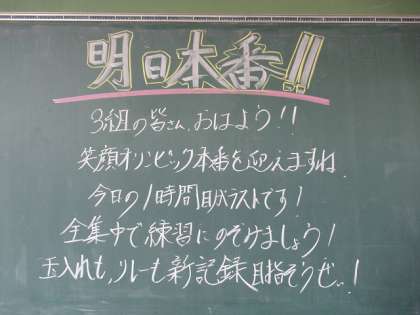 明日本番!!
3組の皆さん、おはよう!!
笑顔オリンピック本番を迎えますね
今日の1時間目がラストです!
全集中で練習にのぞみましょう!
玉入れも、リレーも新記録目指そうぜ!